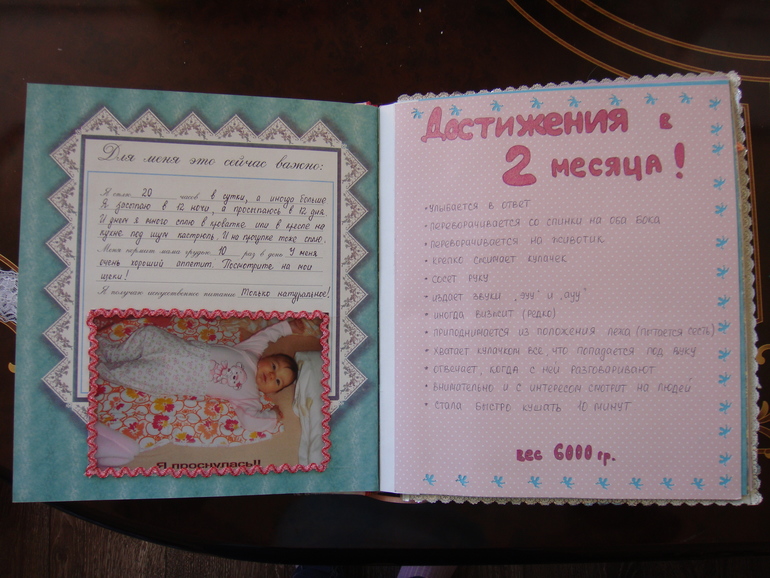 Для меня это сейчас важно:
Я сплю 20 часов в сутки, а иногда больше
Я засыпаю в 12 ночи, а просыпаюсь в 12 дня
И днем я много сплю в кроватке или в кресле на
кухне под шум кастрюль. И на прогулке тоже сплю.
Мама кормит меня грудью 10 раз в день У меня
очень хороший аппетит. Посмотрите на мои
щеки!
Я получаю искусственное питание Только натуральное!
Я проснулась!!
Достижения в
2 месяца!
• улыбается в ответ
• переворачивается со спинки на оба бока
• переворачивается на животик
• крепко сжимает кулачек
• сосет руку
• издает звуки „эуу" и „ауу"
• иногда визжит (редко)
• приподнимается из положения лежа (пытается сесть)
• хватает кулачком все что попадается под руку
• отвечает, когда с ней разговаривают
• внимательно и с интересом смотрит на людей
• стала быстро кушать 10 минут
вес 6000 гр.